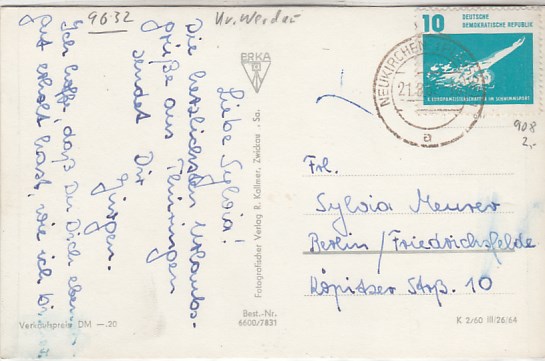 9632
Kr. Werdau
Liebe Sylvia!
Die herzlichsten Urlaubs-
grüße aus Thüringen
sendet Dir
Jürgen.
Ich hoffe, daß Du Dich eben
gut erholt hast, wie ich
PRKA
Fotografischer Verlag R. Kallmer, Zwickau
Sa.
Best.-Nr.
6600/7831
Verkaufspreis DM —.20
10
DEUTSCHE
DEMOKRATISCHE REPUBLIK
X. EUROPAMEISTERSCHAFTEN IM SCHWIMMSPORT
NEUKIRCHEN
21.8
a
908
2,-
Frl.
Sylvia Meurer
Berlin/Friedrichsfelde
Köpitzer Str. 10
K 2/60 III/26/64